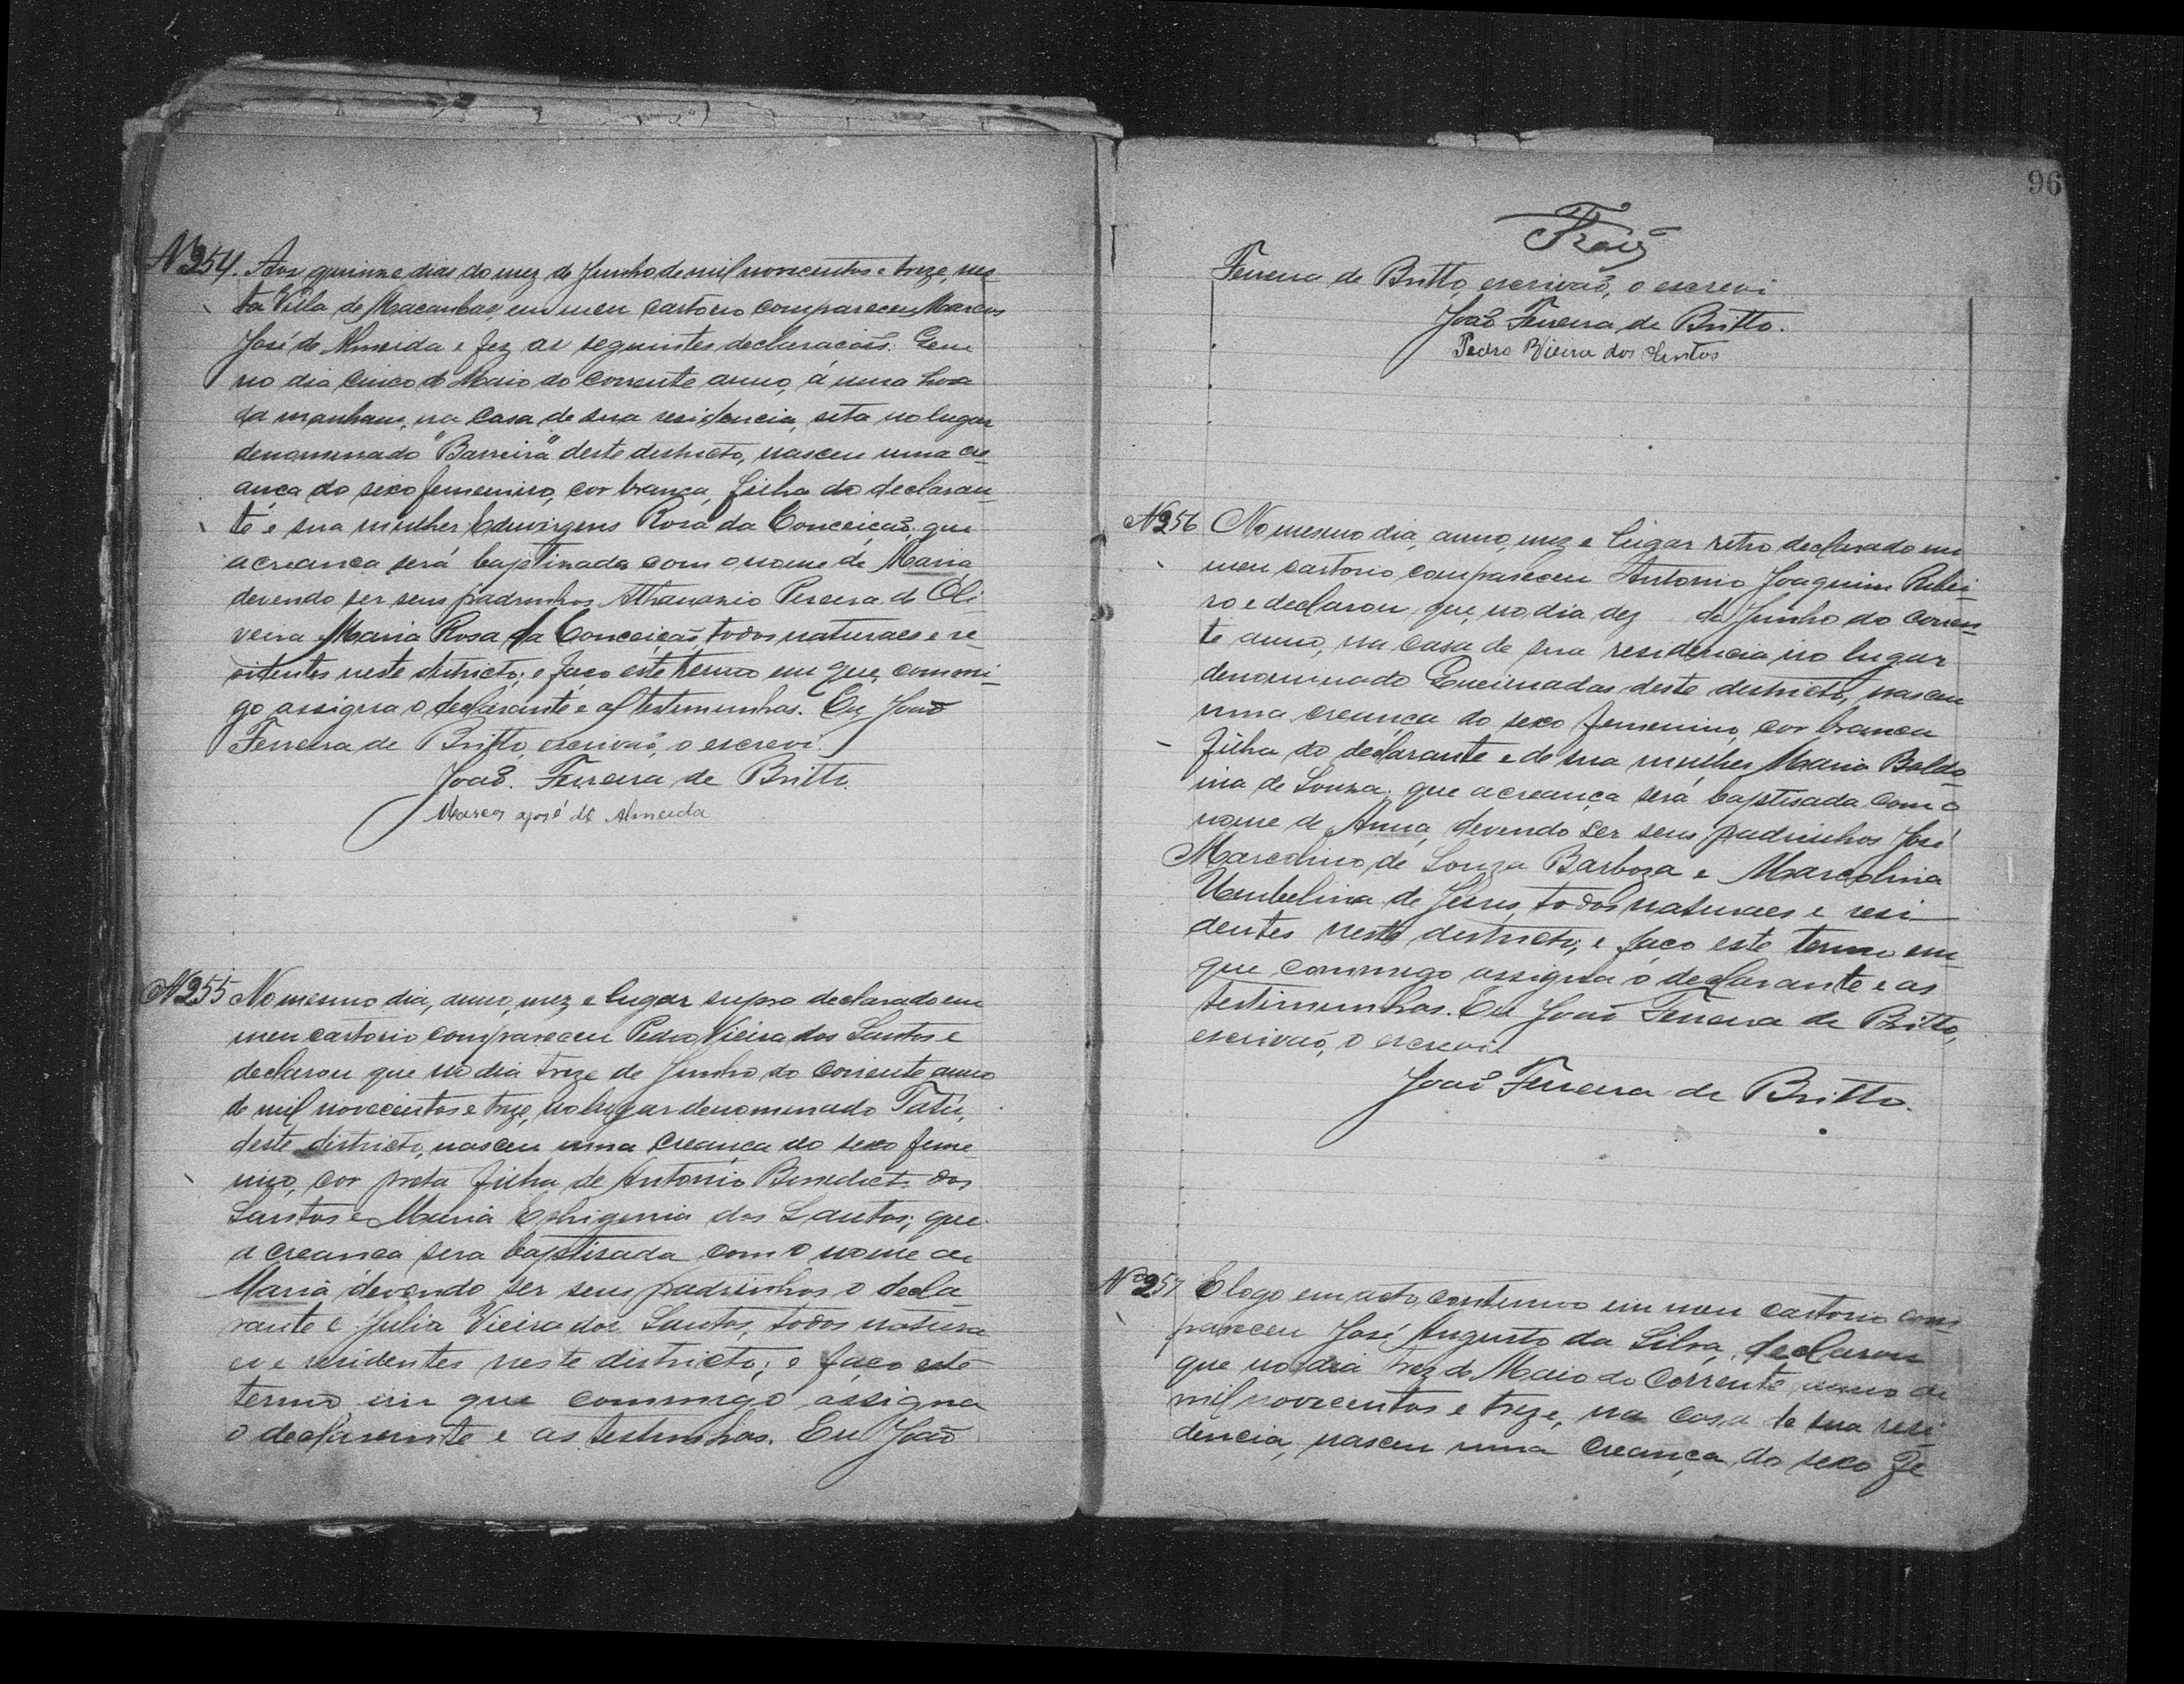 Nº 254. Aos quinze dias do mez de Junho de mil novecentos e treze, nes-
ta Villa de Macaubas, em meu cartorio compareceu Marcos
José de Almeida e fez as seguintes declaracoẽs: Que
no dia cinco de Maio do corrente anno, á uma hora
da manham, na casa de sua residencia, sita no lugar
denominado "Barreira" deste districto, nasceu uma cre-
ança do sexo femenino, cor branca, filha do declaran-
te e sua mulher Eduvirgens Rosa da Conceiçaõ; que
a creança será baptizada com o nome de Maria
devendo ser seus padrinhos Athanazio Pereira de Oli-
veira e Maria Rosa da Conceiçaõ, todos naturaes e re-
sidentes neste districto; e faço este termo em que, commi-
go assigna o declarante e as testimunhas. Eu, Joaõ
Ferreira de Britto, escrivaõ, o escrevi.
Joaõ Ferreira de Britto.
Marcos José de Almeida
Nº 255 No mesmo dia, anno, mez e lugar supra declarado em
meu cartorio compareceu Pedro Vieira dos Santos e
declarou que no dia treze de Junho do corrente anno
de mil novecentos e treze, no lugar denominado Tatú,
deste districto, nasceu uma creança do sexo feme-
nino, cor preta filha de Antonio Benedicto dos
Santos e Maria Ephigenia dos Santos; que
a creança sera baptisada com o nome de
Maria devendo ser seus padrinhos o decla-
rante e Julia Vieira dos Santos, todos natura
es e residentes neste districto; e faço este
termo em que commigo assigna
o declarante e as testimhas. Eu Joaõ
96
Ferreira de Britto, escrivaõ, o escrevi
Joaõ Ferreira de Britto.
Pedro Vieira dos Santos
Nº 256 No mesmo dia, anno, mez e lugar retro declarado em
meu cartorio compareceu Antonio Joaquim Ribei-
ro e declarou que, no dia dez de Junho do corren-
te anno, na casa de sua residencia no lugar
denominado Queimadas deste districto, nasceu
uma creança do sexo femenino, cor branca
filha do declarante e de sua mulher Maria Baldo
ina de Souza; que a creança será baptisada com o
nome de Anna, devendo ser seus padrinhos José
Marcolino de Souza Barboza e Marcolina
Umbelina de Jesus, todos naturaes e resi-
dentes neste districto; e faço este termo em
que commigo assigna o declarante e as
testimunhas. Eu Joaõ Ferreira de Britto,
escrivaõ, o escrevi.
Joaõ Ferreira de Britto.
Nº 257 E logo em acto continuo em meu cartorio com-
pareceu José Augusto da Silva, declarou
que no dia trez de Maio do corrente anno de
mil novecentos e treze, na casa de sua resi-
dencia, nasceu uma creança do sexo fe